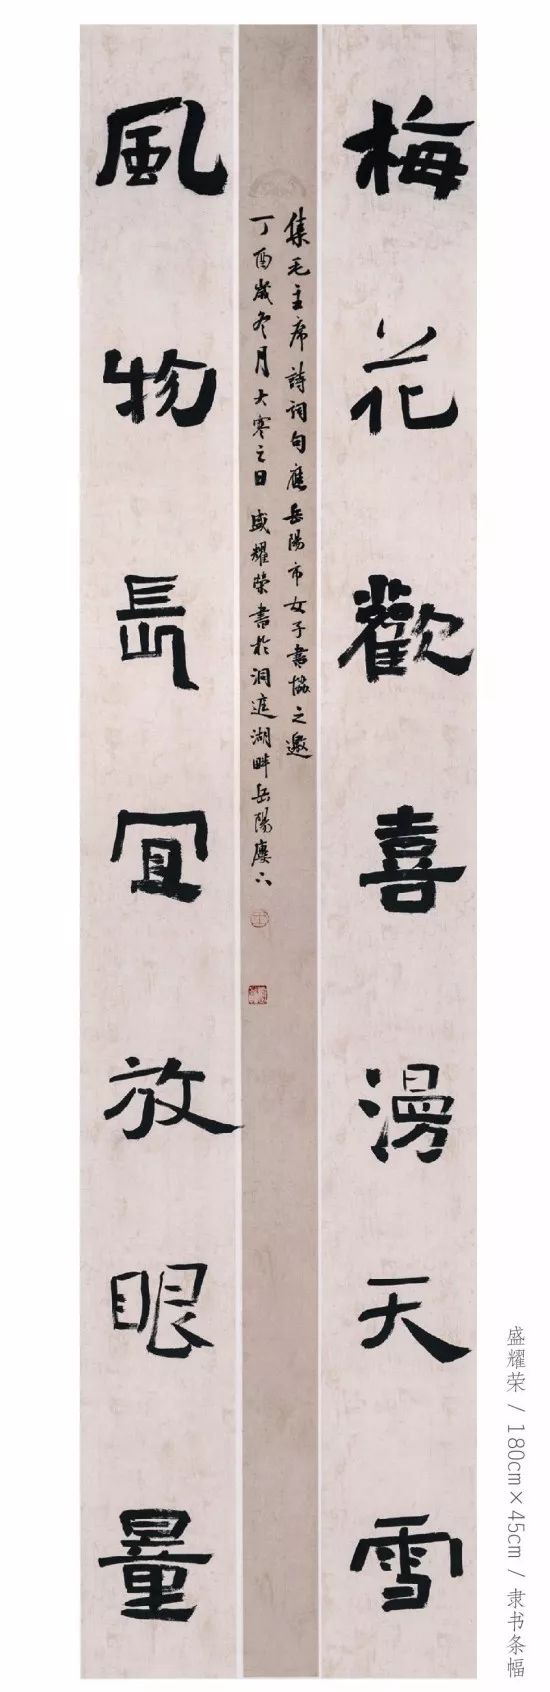 梅花歡喜漫天雪
集毛主席詩詞句應岳陽市女子書協之邀
丁酉歲冬月大寒之日盛耀榮書於洞庭湖畔岳陽廔下
風物長宜放眼量
盛耀荣 / 180cm×45cm / 隶书条幅